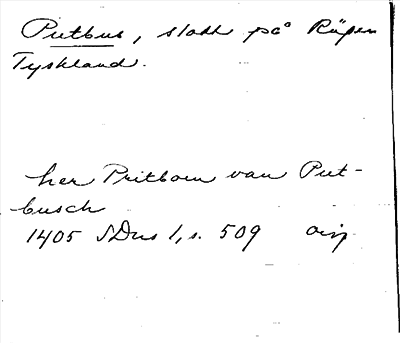 Putbus, slott på Rügen
Tyskland.
her Pritborn van Put-
busch
1405 SDns 1, s. 509 orig